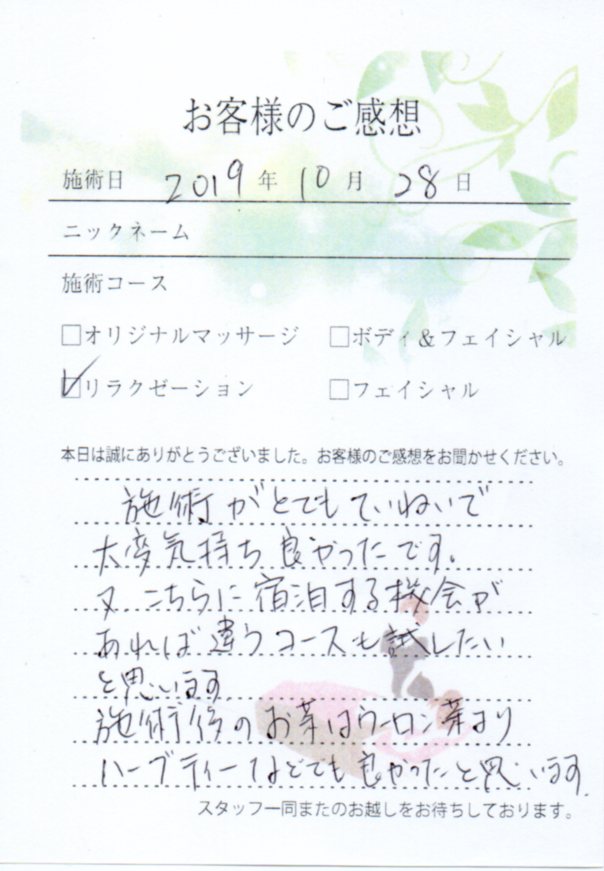 お客様のご感想
施術日 2019年 10月 28日
ニックネーム
施術コース
□オリジナルマッサージ □ボディ&フェイシャル
☑リラクゼーション □フェイシャル
本日は誠にありがとうございました。お客様のご感想をお聞かせください。
施術がとてもていねいで
大変気持ち良かったです。
又、こちらに宿泊する機会が
あれば違うコースも試したい
と思います。
施術後のお茶はウーロン茶より
ハーブティーなどでも良かったと思います。
スタッフ一同またのお越しをお待ちしております。